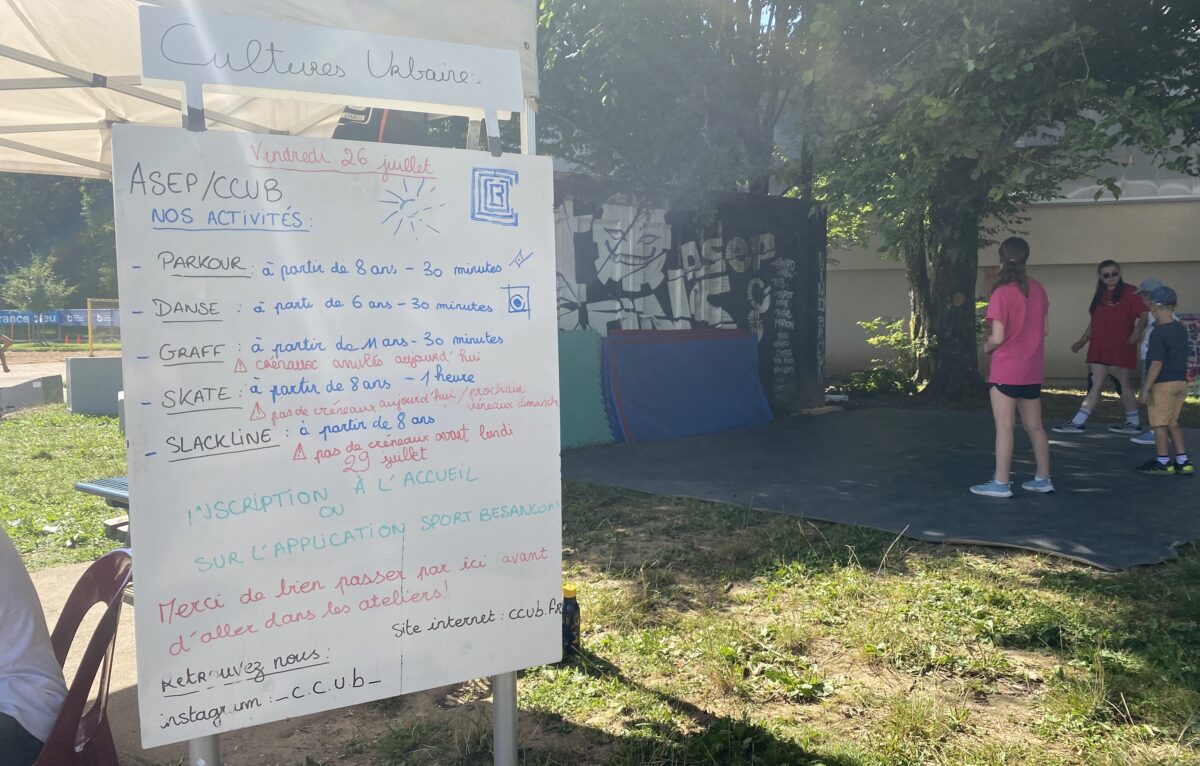 Cultures Urbaine
Vendredi 26 juillet
ASEP/CCUB
NOS ACTIVITÉS:
- PARKOUR: à partir de 8 ans - 30 minutes
- DANSE: à partir de 6 ans - 30 minutes
- GRAFF: à partir de 11 ans - 30 minutes
⚠ créneaux annulés aujourd'hui
- SKATE: à partir de 8 ans - 1 heure
⚠ pas de créneaux aujourd'hui/prochain
créneaux dimanche
- SLACKLINE: à partir de 8 ans
⚠ pas de créneaux avant lundi
29 juillet
INSCRIPTION À L'ACCUEIL
OU
SUR L'APPLICATION SPORT BESANCON
Merci de bien passer par ici avant
d'aller dans les ateliers!
Site internet: ccub.FR
Retrouvez nous:
instagram: _c.c.u.b_
rance bleu
asep